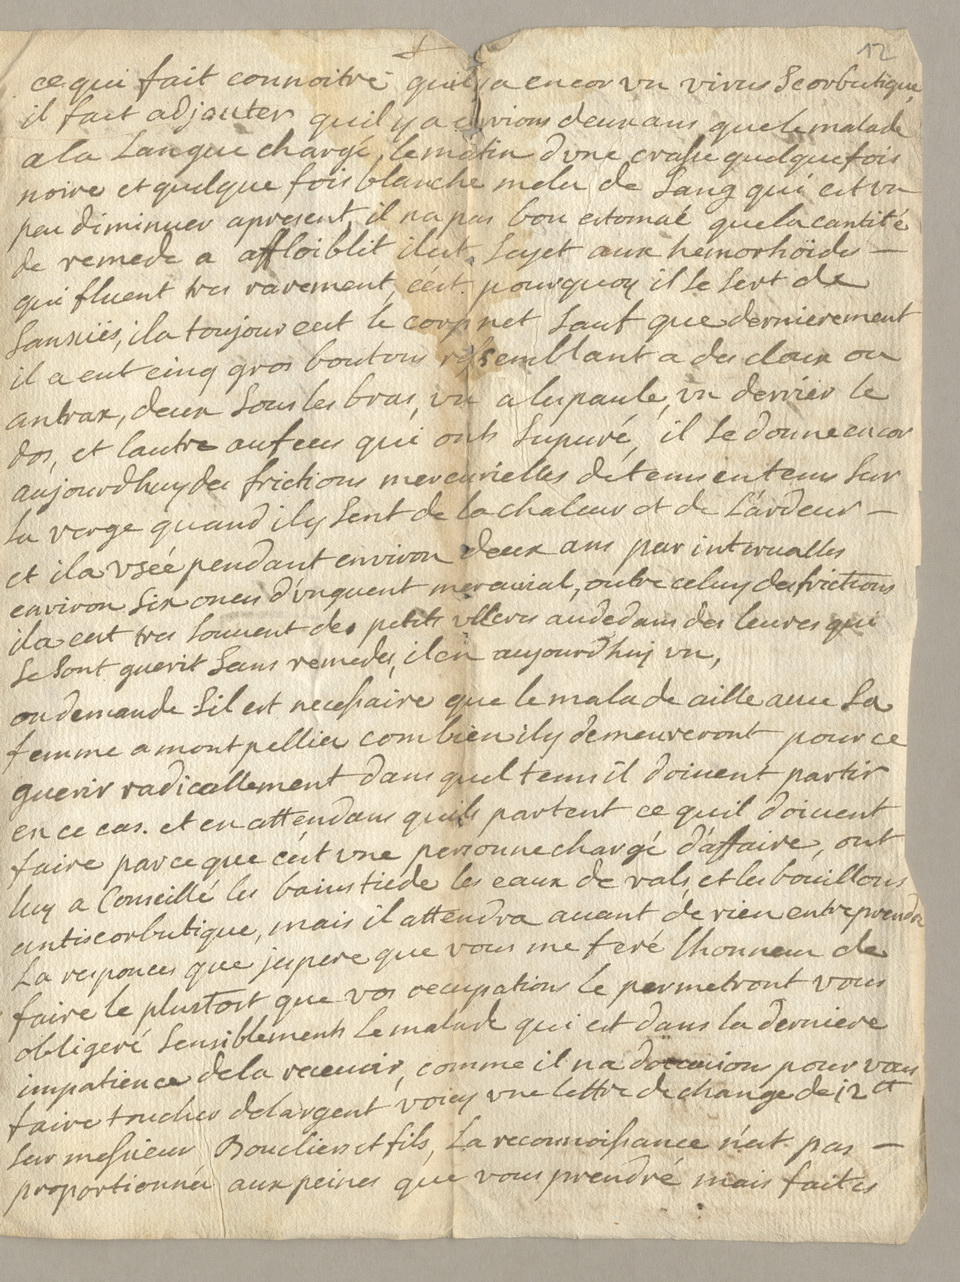 12
ce qui fait connoitre quil ya encor vn virus Scorbutique
il faut adjouter quil y a environs deux ans que le malade
a la Langue chargé, le matin dvne crasse quelque fois
noire et quelque fois blanche melee de Sang qui est vn
peu diminuer apresent, il na pas bon estomac que la cantité
de remede a affloiblit il est Sujet aux hemorhoides —
qui fluent tres rarement, c'est pourquoy il se sert de
Sansües, il a toujour eut le corp net Sauf que dernierement
il a eut cinq gros boutons ressemblant a des cloux ou
antrax, deux Sous les bras, vn a lepaule, vn derrier le
dos, et lautre aufeces qui onts Supuré, il Se donne encor
aujourdhuy des frictions mercurielles de tems en tems Sur
la verge quand il y Sent de la chaleur et de L'ardeur —
et il a vsée pendant environ deux ans par intervalles
environ Six onces d'vnguent mercurial, outre celuy des frictions
il a eut tres Souvent des petits vlleres audedans des leures qui
Se Sont guerit Sans remedes, il en aujourdhuy vn,
on demande Sil est necessaire que le malade aille avec Sa
femme a montpellier combien ily demeureront pour ce
guerir radicallement dans quel tems il doivent partir
en ce cas. et en attendans quils partent ce quil doivent
faire parce que c'est vne personne chargé d'affaire, ont
luy a Conseillé les bains tiede les eaux de vals et les bouillons
antiscorbutique, mais il attendra avant de rien entreprendre
La responces que jespere que vous me feré lhonneur de
faire le plustost que vos occupations le permetront vous
obligeré Sensiblements Le malade qui est dans la derniere
impatience de la recevoir, comme il na doccasions pour vous
faire toucher delargent voicy vne lettre de change de 12 tt
Sur messieur Bouclier et fils, La reconnoissance n'est pas —
proportionnée aux peines que vous prendré mais faites